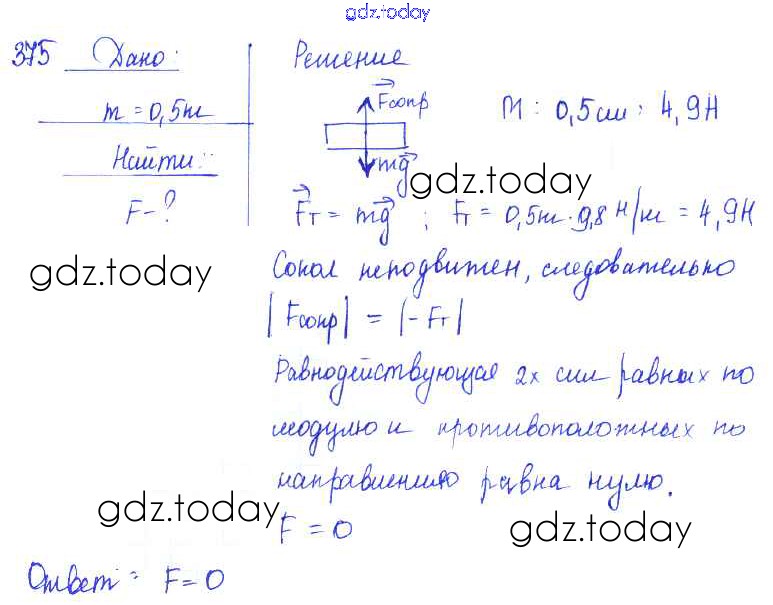 gdz.today
375 Дано: Решение
Fсопр
m = 0,5кг М: 0,5см : 4,9Н
Найти: mg
gdz.today
F - ? Fт = mg ; Fт = 0,5кг · 9,8 Н/кг = 4,9Н
gdz.today
Сокол неподвижен, следовательно
|Fсопр| = |-Fт|
Равнодействующая 2х сил равных по
модулю и противоположных по
направлению равна нулю.
gdz.today
F = 0
gdz.today
Ответ: F = 0